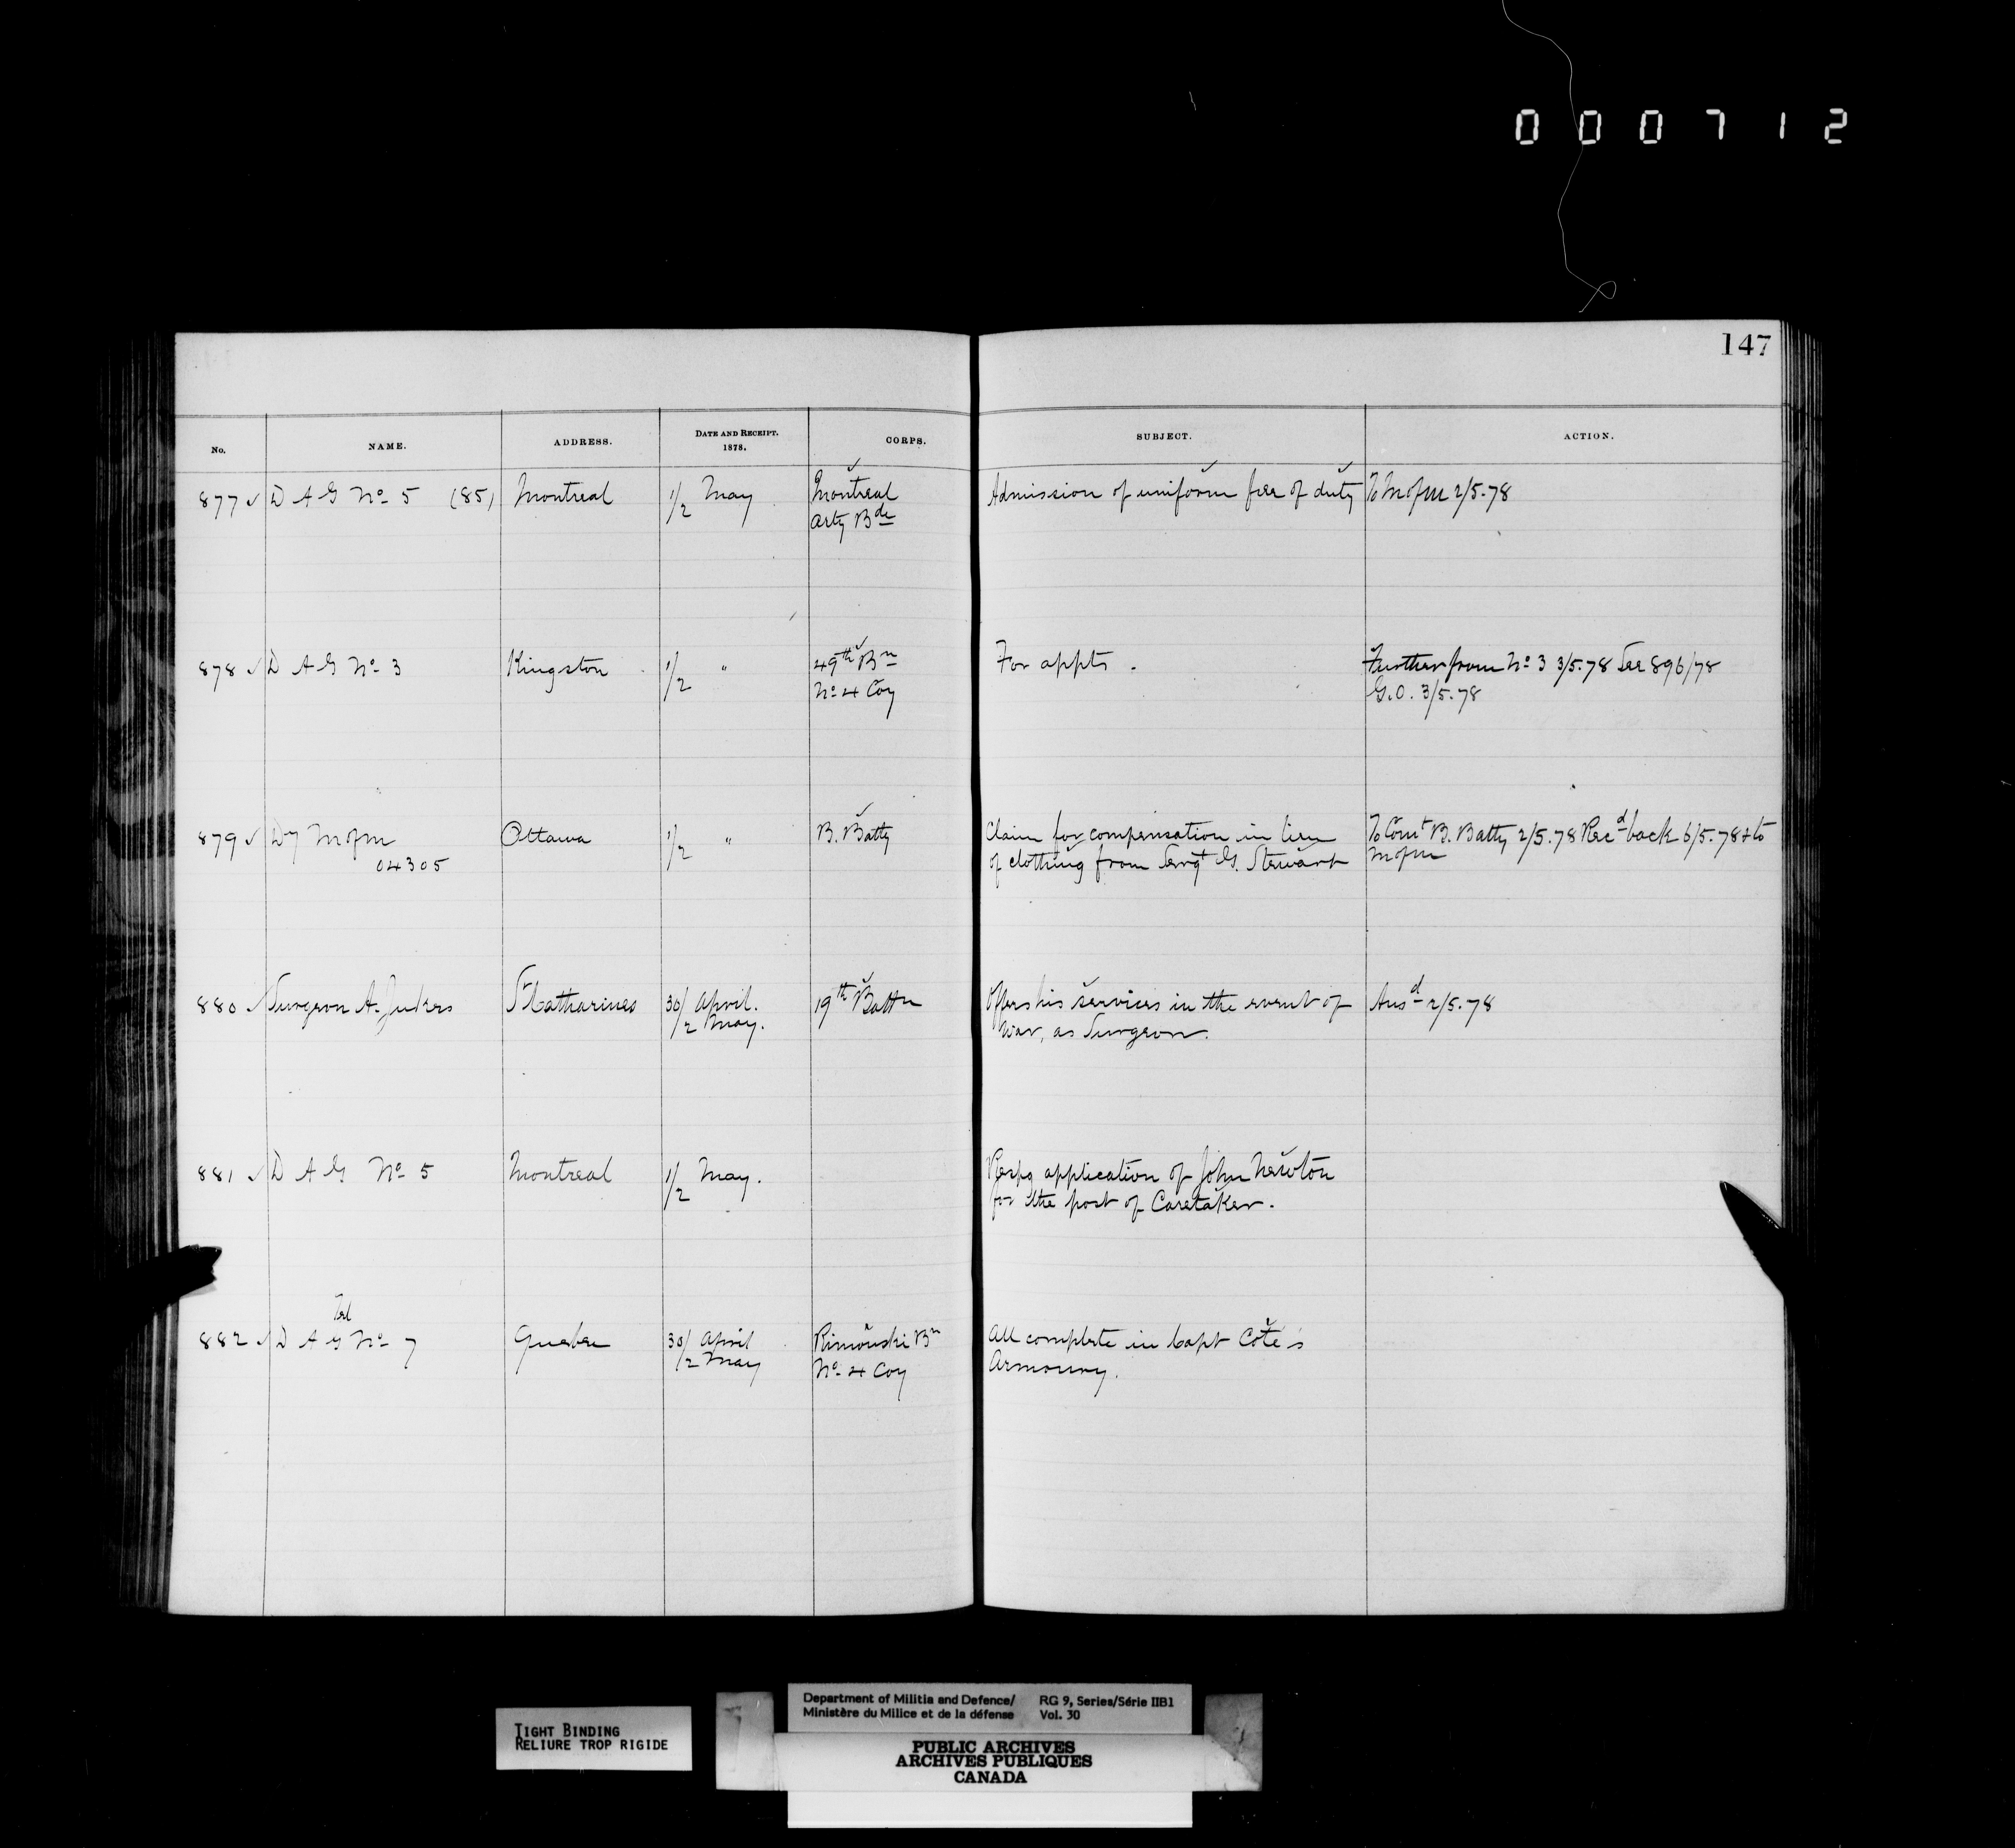 0 0 0 7 1 2
147
No. NAME. ADDRESS. DATE AND RECEIPT. 1878. CORPS. SUBJECT. ACTION.
877 ✓ D A G No 5 (85) Montreal 1/2 May Montreal Admission of uniform free of duty To M of M 2/5.78
Arty Bde
878 ✓ D A G No 3 Kingston 1/2 " 49th Bn For appts. Further from No 3 3/5.78 See 896/78
No 4 Coy G.O. 3/5.78
879 ✓ Dy M of M Ottawa 1/2 " B. Batty Claim for compensation in lieu To Comt B. Batty 2/5.78 Recd back 6/5.78 & to
04305 of clothing from Sergt G. Stewart M of M
880 ✓ Surgeon A. Jukes St Catharines 30/ April. 19th Battn Offers his services in the event of Ansd 2/5.78
/2 May. War, as Surgeon.
881 ✓ D A G No 5 Montreal 1/2 May. Respg application of John Newton
for the post of Caretaker.
Tel
882 ✓ D A G No 7 Quebec 30/ April Rimouski Bn All complete in Capt Coté's
/2 May No 4 Coy Armoury.
TIGHT BINDING
RELIURE TROP RIGIDE
Department of Militia and Defence/ RG 9, Series/Série IIB1
Ministère du Milice et de la défense Vol. 30
PUBLIC ARCHIVES
ARCHIVES PUBLIQUES
CANADA